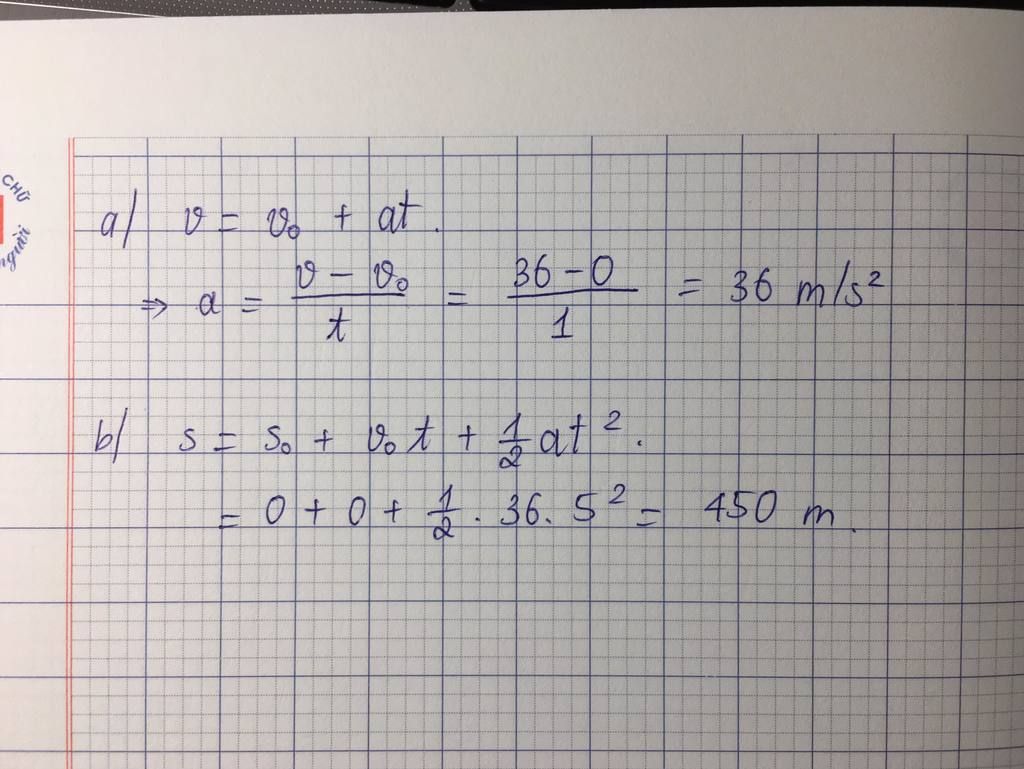 CHỮ
người
a/ v = v₀ + at.
⇒ a = (v - v₀)/t = (36 - 0)/1 = 36 m/s²
b/ s = s₀ + v₀t + ½at².
= 0 + 0 + ½ . 36 . 5² = 450 m.